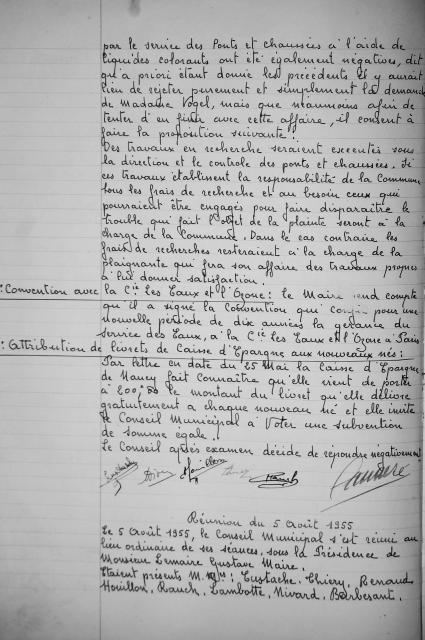 par le service des Ponts et chaussées à l'aide de
liquides colorants ont été également négatives, dit
qu'a priori étant donné les précédents il y aurait
lieu de rejeter purement et simplement la demande
de Madame Vogel, mais que néanmoins afin de
tenter d'en finir avec cette affaire, il consent à
faire la proposition suivante :
Des travaux en recherche seraient executés sous
la direction et le controle des ponts et chaussées. Si
ces travaux établissent la responsabilité de la Commune
tous les frais de recherche et au besoin ceux qui
pourraient être engagés pour faire disparaitre le
trouble qui fait l'objet de la plainte seront à la
charge de la Commune. Dans le cas contraire les
frais de recherches resteraient à la charge de la
plaignante qui fera son affaire des travaux propres
à lui donner satisfaction.
Convention avec la Cie les Eaux et l'Ozone : le Maire rend compte
qu'il a signé la Convention qui confie pour une
nouvelle période de dix années la gérance du
service des Eaux, à la Cie les Eaux et l'Ozone à Paris
Attribution de livrets de Caisse d'Epargne aux nouveaux nés :
Par lettre en date du 25 Mai la Caisse d'Epargne
de Nancy fait connaître qu'elle vient de porter
à 200,00 le montant du livret qu'elle délivre
gratuitement a chaque nouveau né et elle invite
le Conseil Municipal à voter une subvention
de somme égale.
Le Conseil après examen décide de répondre négativement
Réunion du 5 Août 1955
Le 5 Août 1955, le Conseil Municipal s'est réuni au
lieu ordinaire de ses séances, sous la Présidence de
Monsieur Lemaire Gustave Maire.
Etaient présents M.M. : Eustache, Thiery, Renaud
Houillon, Rauch, Lambotte, Nivard, Barbesant.